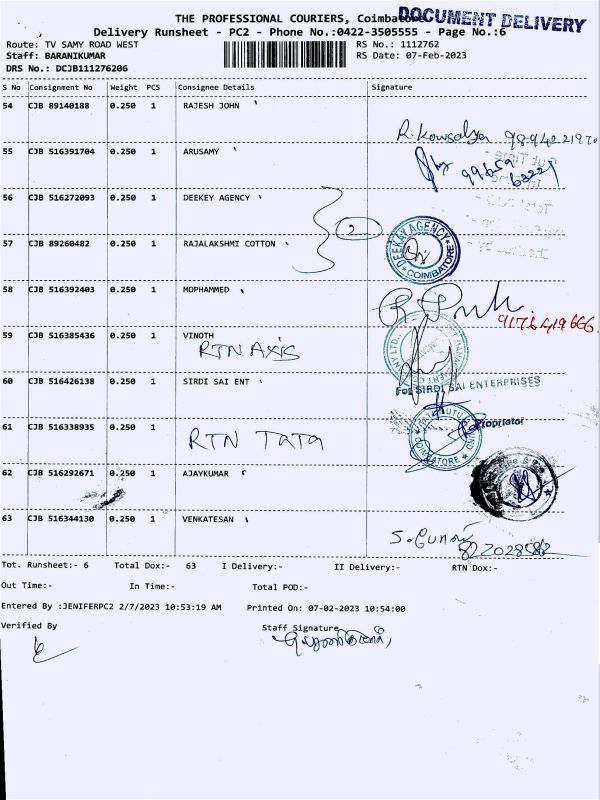 THE PROFESSIONAL COURIERS, Coimbatore
DOCUMENT DELIVERY
Delivery Runsheet - PC2 - Phone No.:0422-3505555 - Page No.:6
Route: TV SAMY ROAD WEST
RS No.: 1112762
Staff: BARANIKUMAR
RS Date: 07-Feb-2023
DRS No.: DCJB111276206
S No Consignment No Weight PCS Consignee Details Signature
54 CJB 89140188 0.250 1 RAJESH JOHN
R. Kowsalya
55 CJB 516391704 0.250 1 ARUSAMY
56 CJB 516272093 0.250 1 DEEKEY AGENCY
2
DEEKAY AGENCY COIMBATORE
57 CJB 89260482 0.250 1 RAJALAKSHMI COTTON
58 CJB 516392403 0.250 1 MOPHAMMED
59 CJB 516385436 0.250 1 VINOTH
RTN AXIS
60 CJB 516426138 0.250 1 SIRDI SAI ENT
For SIRDI SAI ENTERPRISES
Proprietor
61 CJB 516338935 0.250 1
RTN TATA
COIMBATORE
62 CJB 516292671 0.250 1 AJAYKUMAR
63 CJB 516344130 0.250 1 VENKATESAN
Tot. Runsheet:- 6 Total Dox:- 63 I Delivery:- II Delivery:- RTN Dox:-
Out Time:- In Time:- Total POD:-
Entered By :JENIFERPC2 2/7/2023 10:53:19 AM Printed On: 07-02-2023 10:54:00
Verified By Staff Signature